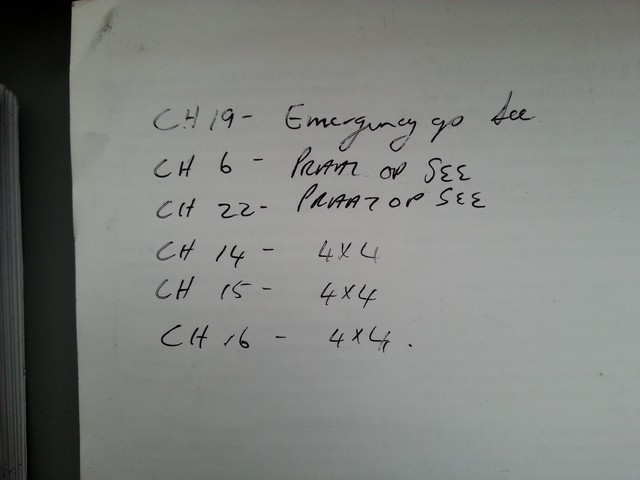 CH 19- Emergency op see
CH 6 - PRAAT OP SEE
CH 22- PRAAT OP SEE
CH 14 - 4X4
CH 15 - 4X4
CH 16 - 4X4.